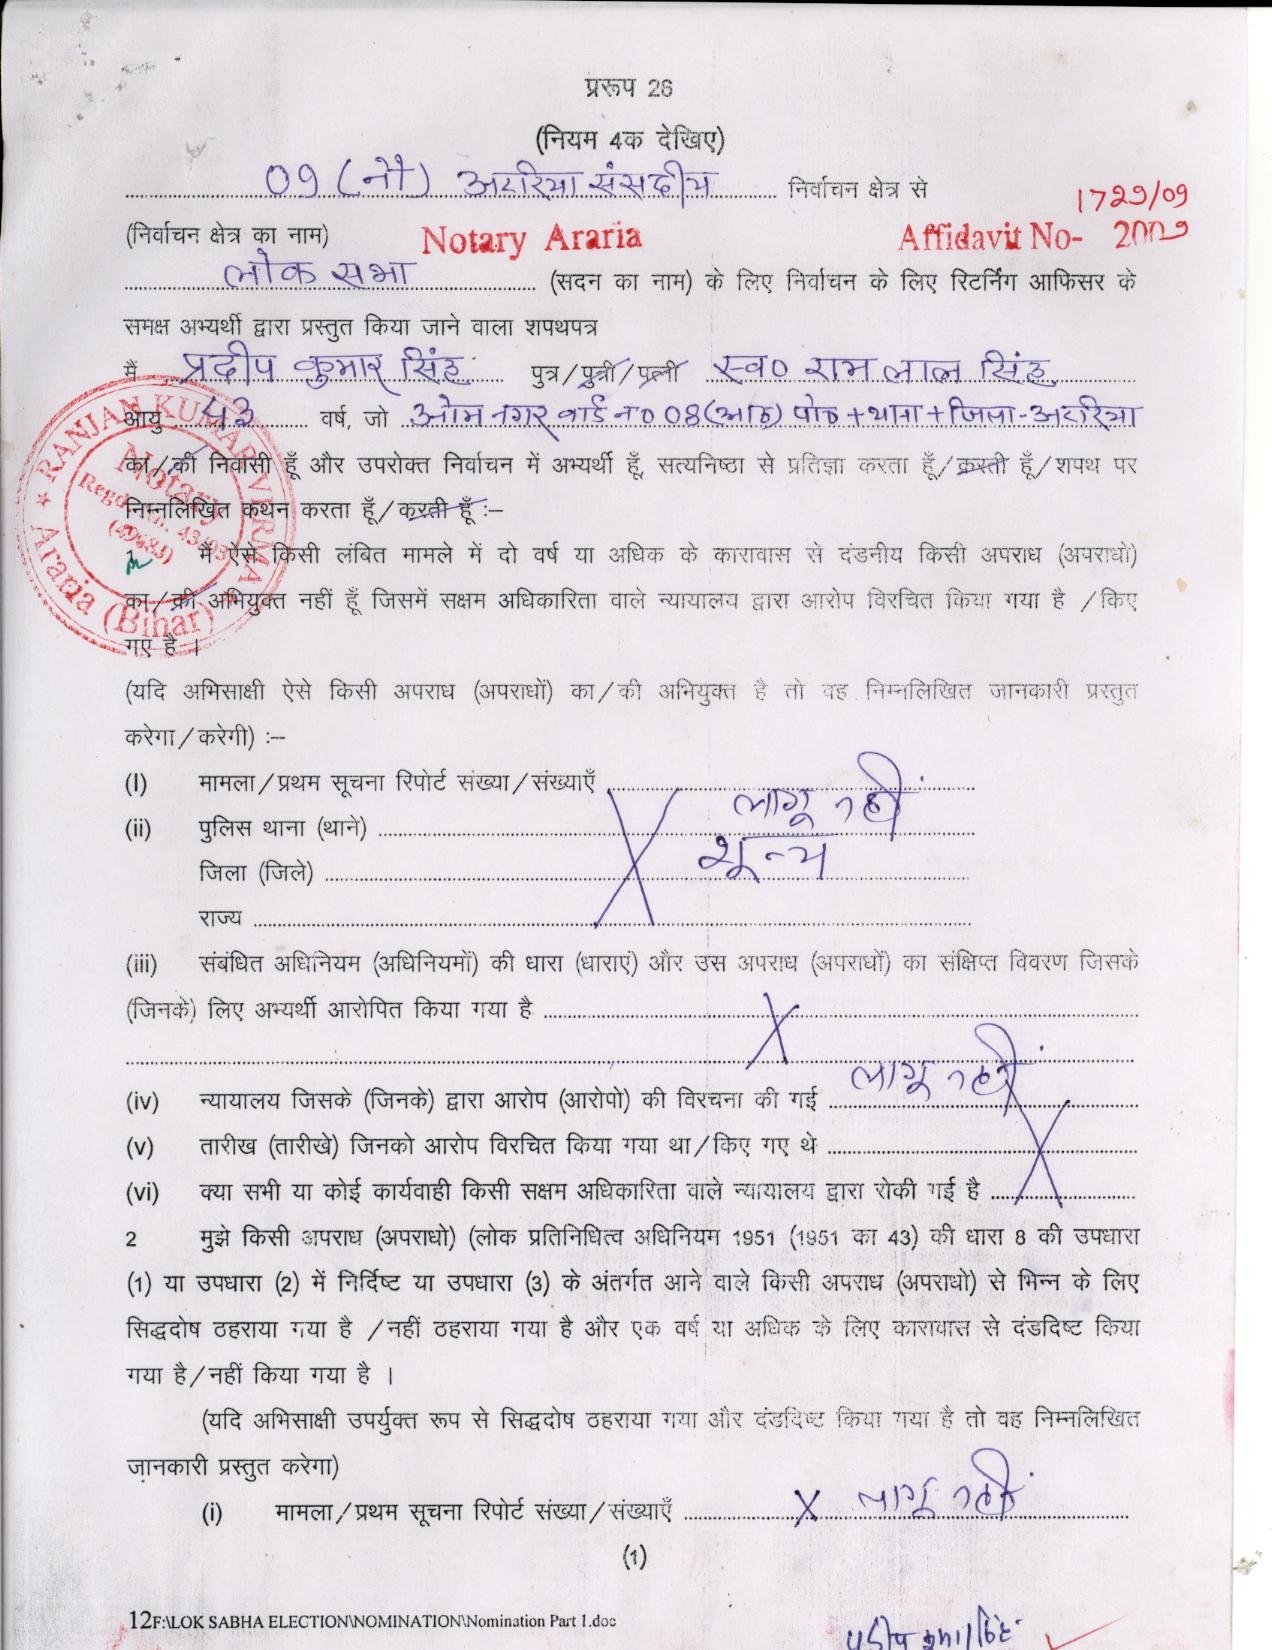 प्ररूप 26
(नियम 4क देखिए)
09 (नौ) अररिया संसदीय निर्वाचन क्षेत्र से
1729/09
(निर्वाचन क्षेत्र का नाम) Notary Araria Affidavit No- 2009
लोक सभा (सदन का नाम) के लिए निर्वाचन के लिए रिटर्निंग आफिसर के
समक्ष अभ्यर्थी द्वारा प्रस्तुत किया जाने वाला शपथपत्र
मैं प्रदीप कुमार सिंह पुत्र/पुत्री/पत्नी स्व० राम लाल सिंह
आयु वर्ष, जो ओम नगर वार्ड न० 08(आठ) पो० +थाना+जिला-अररिया
का/की निवासी हूँ और उपरोक्त निर्वाचन में अभ्यर्थी हूँ, सत्यनिष्ठा से प्रतिज्ञा करता हूँ/करती हूँ/शपथ पर
निम्नलिखित कथन करता हूँ/करती हूँ :–
RANJAN KUMAR VERMA
Notary
Araria (Bihar)
1 मैं ऐसे किसी लंबित मामले में दो वर्ष या अधिक के कारावास से दंडनीय किसी अपराध (अपराधो)
का/की अभियुक्त नहीं हूँ जिसमें सक्षम अधिकारिता वाले न्यायालय द्वारा आरोप विरचित किया गया है /किए
गए है ।
(यदि अभिसाक्षी ऐसे किसी अपराध (अपराधों) का/की अभियुक्त है तो वह निम्नलिखित जानकारी प्रस्तुत
करेगा/करेगी) :–
(I) मामला/प्रथम सूचना रिपोर्ट संख्या/संख्याएँ लागू नहीं
(ii) पुलिस थाना (थाने) शून्य
जिला (जिले)
राज्य
(iii) संबंधित अधिनियम (अधिनियमों) की धारा (धाराएं) और उस अपराध (अपराधों) का संक्षिप्त विवरण जिसके
(जिनके) लिए अभ्यर्थी आरोपित किया गया है
लागू नहीं
(iv) न्यायालय जिसके (जिनके) द्वारा आरोप (आरोपो) की विरचना की गई
(v) तारीख (तारीखे) जिनको आरोप विरचित किया गया था/किए गए थे
(vi) क्या सभी या कोई कार्यवाही किसी सक्षम अधिकारिता वाले न्यायालय द्वारा रोकी गई है
2 मुझे किसी अपराध (अपराधो) (लोक प्रतिनिधित्व अधिनियम 1951 (1951 का 43) की धारा 8 की उपधारा
(1) या उपधारा (2) में निर्दिष्ट या उपधारा (3) के अंतर्गत आने वाले किसी अपराध (अपराधो) से भिन्न के लिए
सिद्धदोष ठहराया गया है /नहीं ठहराया गया है और एक वर्ष या अधिक के लिए कारावास से दंडदिष्ट किया
गया है/नहीं किया गया है ।
(यदि अभिसाक्षी उपर्युक्त रूप से सिद्धदोष ठहराया गया और दंडदिष्ट किया गया है तो वह निम्नलिखित
जानकारी प्रस्तुत करेगा)
(i) मामला/प्रथम सूचना रिपोर्ट संख्या/संख्याएँ x लागू नहीं
(1)
12F:\LOK SABHA ELECTION\NOMINATION\Nomination Part 1.doc
प्रदीप कुमार सिंह